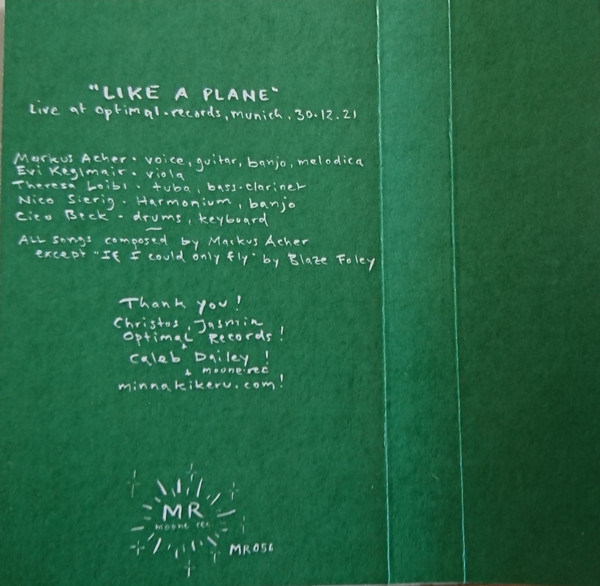 "LIKE A PLANE"
Live at optimal.records, munich, 30.12.21
Markus Acher · voice, guitar, banjo, melodica
Evi Keglmair · viola
Theresa Loibl · tuba, bass-clarinet
Nico Sierig · Harmonium, banjo
Cico Beck · drums, keyboard
ALL songs composed by Markus Acher
except "If I could only fly" by Blaze Foley
Thank you!
Christos, Jasmin
Optimal Records!
+
Caleb Dailey!
+ moone rec
minnakikeru.com!
MR
moone rec
MR056